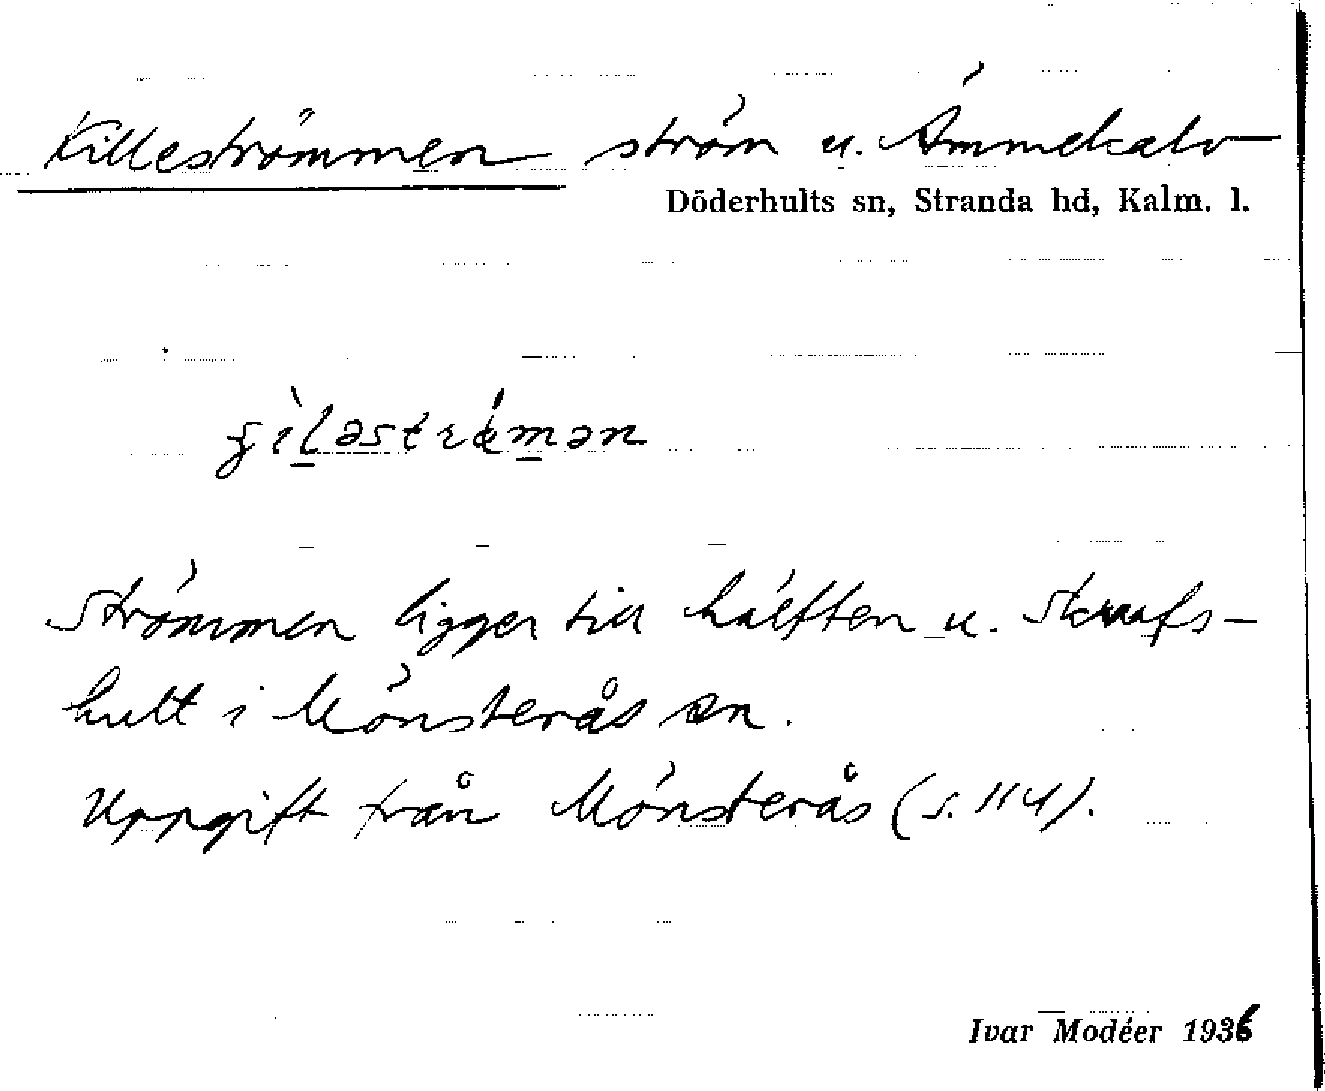 Killeströmmen ström u. Ämmekalv
Döderhults sn, Stranda hd, Kalm. l.
Strömmen ligger till hälften u. Skrufs-
hult i Mönsterås sn.
Uppgift från Mönsterås (s. 114).
Ivar Modéer 1936